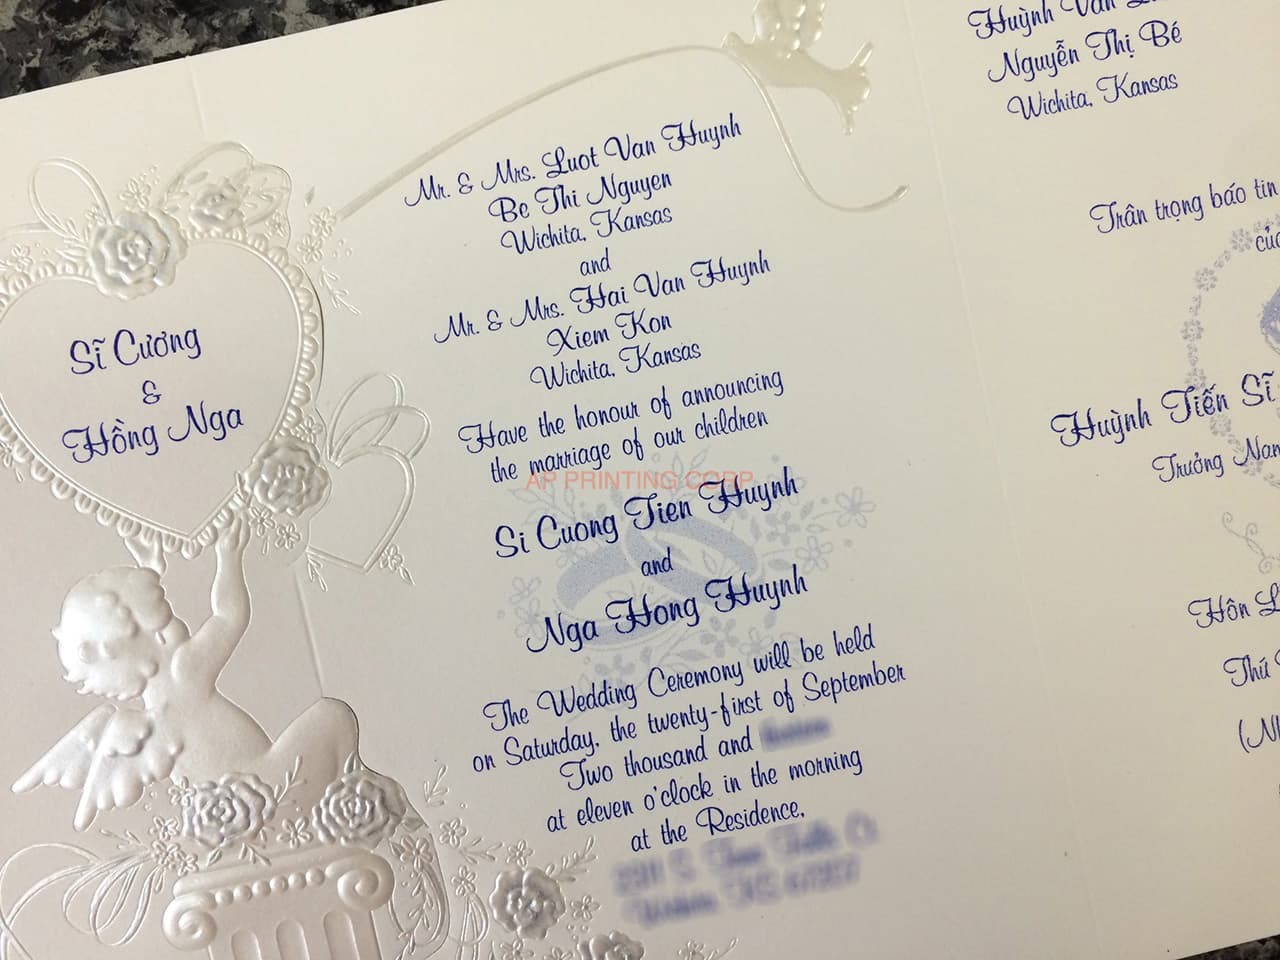 Sĩ Cương
&
Hồng Nga
Mr. & Mrs. Luot Van Huynh
Be Thi Nguyen
Wichita, Kansas
and
Mr. & Mrs. Hai Van Huynh
Xiem Kon
Wichita, Kansas
Have the honour of announcing
the marriage of our children
AP PRINTING CORP
Si Cuong Tien Huynh
and
Nga Hong Huynh
The Wedding Ceremony will be held
on Saturday, the twenty-first of September
Two thousand and
at eleven o'clock in the morning
at the Residence,
Huỳnh Văn
Nguyễn Thị Bé
Wichita, Kansas
Trân trọng báo tin
của
Huỳnh Tiến Sĩ
Trưởng Nam
Hôn
Thứ